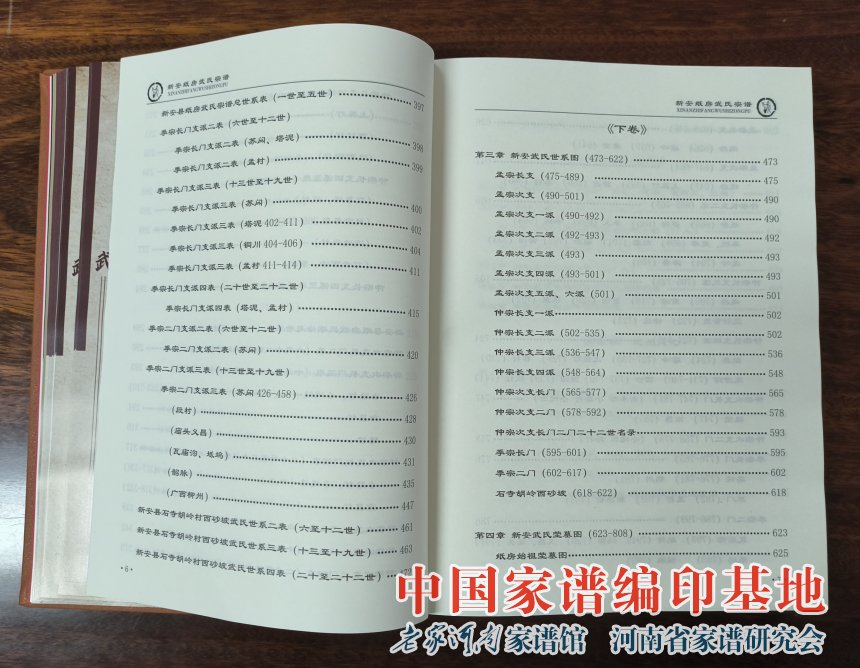 新安纸房武氏宗谱
XINANZHIFANGWUSHIZONGPU
新安县纸房武氏宗谱总世系表（一世至五世） 397
季宗长门支派二表（六世至十二世）
季宗长门支派二表（苏闫、塔泥） 398
季宗长门支派二表（孟村） 399
季宗长门支派三表（十三世至十九世）
季宗长门支派三表（苏闫） 400
季宗长门支派三表（塔泥 402-411） 402
季宗长门支派三表（铜川 404-406） 404
季宗长门支派三表（孟村 411-414） 411
季宗长门支派四表（二十世至二十二世）
季宗长门支派四表（塔泥、孟村） 415
季宗二门支派二表（六世至十二世）
季宗二门支派二表（苏闫） 420
季宗二门支派三表（十三世至十九世）
季宗二门支派三表（苏闫 426-458） 426
（段村） 428
（庙头义昌） 430
（瓦庙沟、塔坞） 431
（韶脉） 435
（广西柳州） 447
新安县石寺胡岭村西砂坡武氏世系二表（六至十二世） 461
新安县石寺胡岭村西砂坡武氏世系三表（十三至十九世） 463
新安县石寺胡岭村西砂坡武氏世系四表（二十至二十二世） 472
·6·
新安纸房武氏宗谱
XINANZHIFANGWUSHIZONGPU
《下卷》
第三章 新安武氏世系图（473-622） 473
孟宗长支（475-489） 475
孟宗次支（490-501） 490
孟宗次支一派（490-492） 490
孟宗次支二派（492-493） 492
孟宗次支三派（493） 493
孟宗次支四派（493-501） 493
孟宗次支五派、六派（501） 501
仲宗长支一派 502
仲宗长支二派（502-535） 502
仲宗长支三派（536-547） 536
仲宗长支四派（548-564） 548
仲宗次支长门（565-577） 565
仲宗次支二门（578-592） 578
仲宗次支长门二门二十二世名录 593
季宗长门（595-601） 595
季宗二门（602-617） 602
石寺胡岭西砂坡（618-622） 618
第四章 新安武氏茔墓图（623-808） 623
纸房始祖茔墓图 625
中国家谱编印基地
老家河南家谱馆 河南省家谱研究会